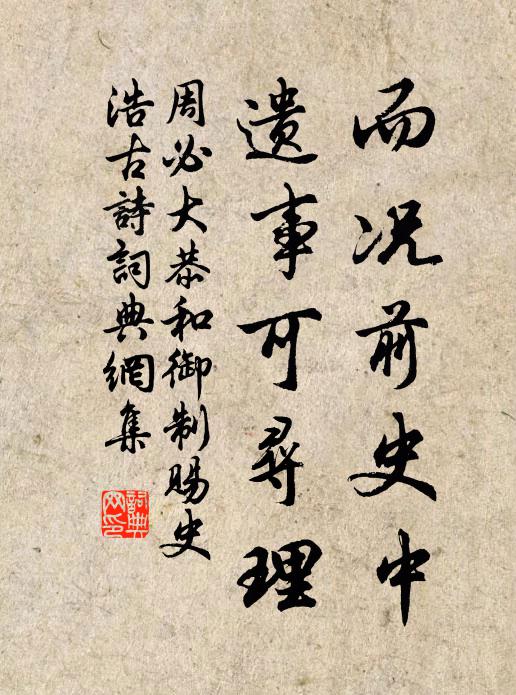 而况前史中
遗事可尋理
周必大恭和御制賜史
浩古詩詞典網集
詞典
网印